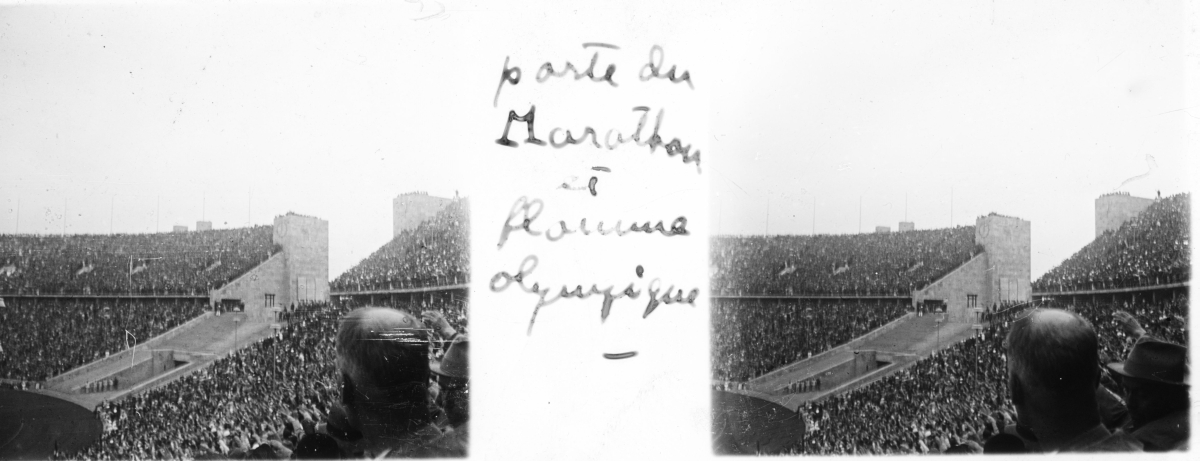 porte du
Marathon
et
flamme
olympique